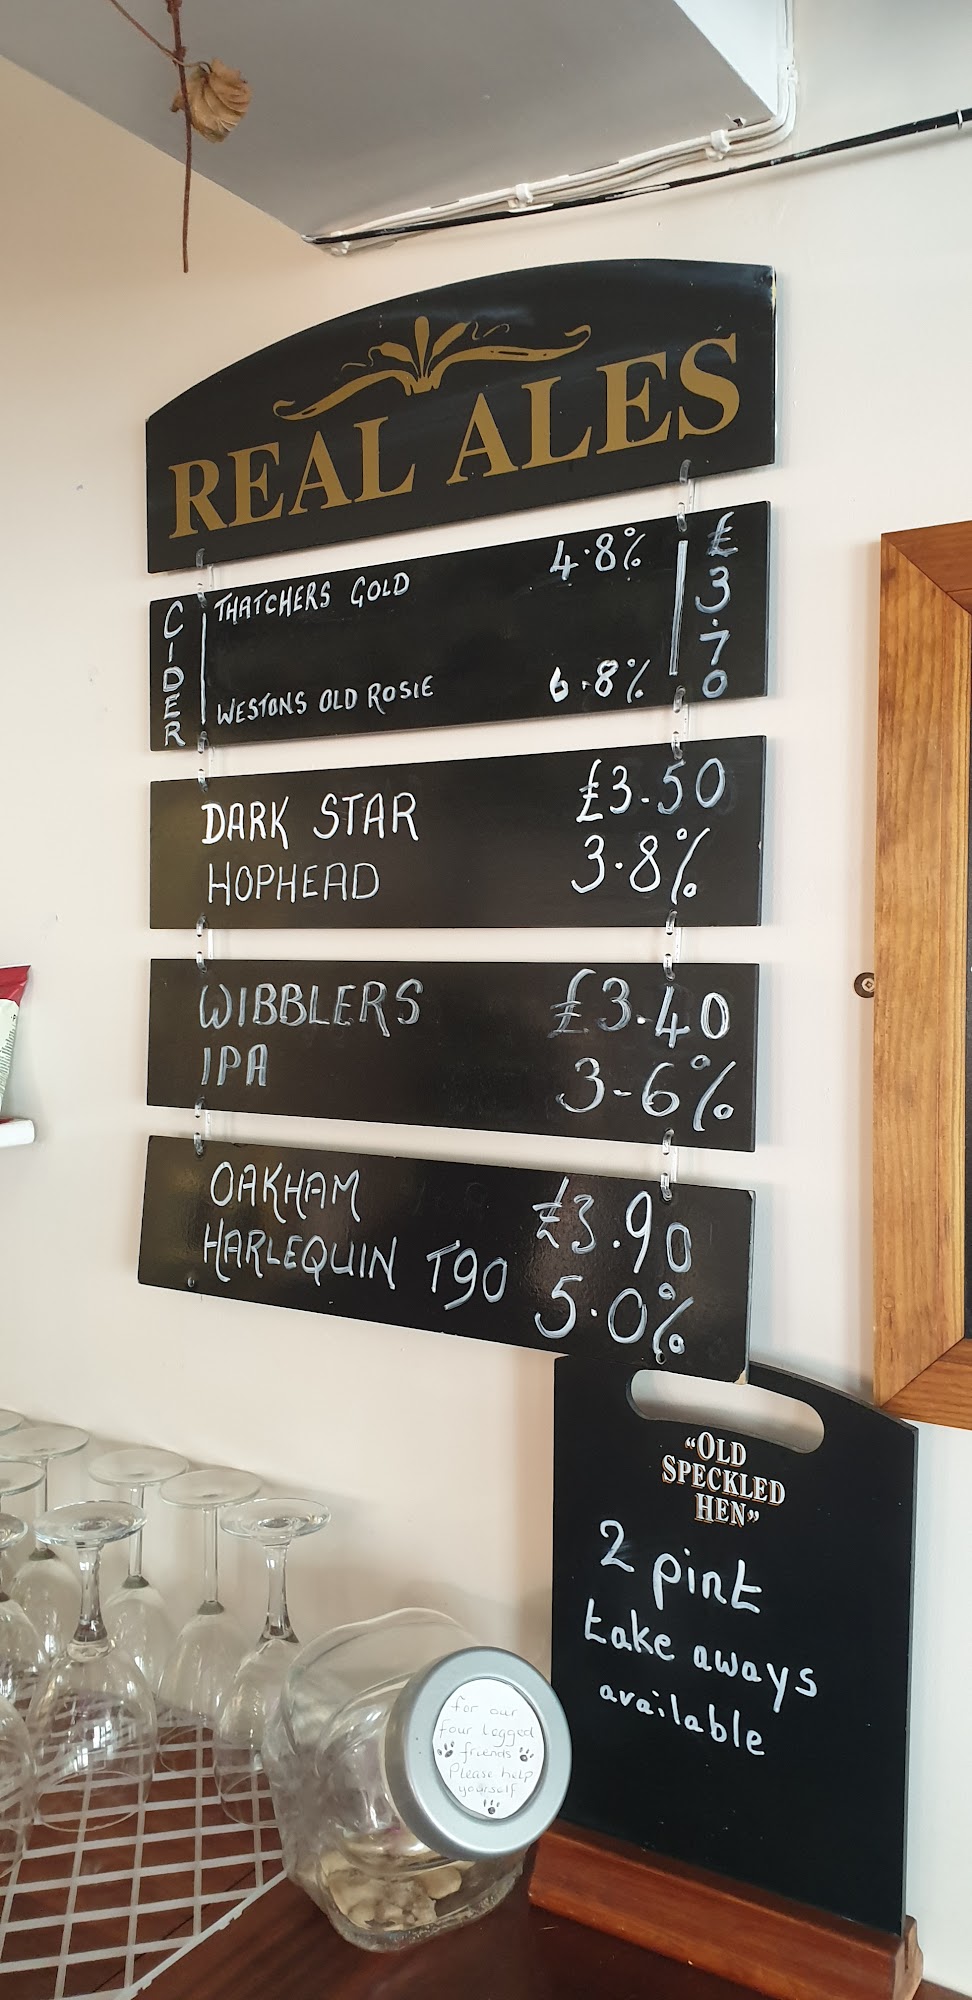 REAL ALES
CIDER
THATCHERS GOLD 4.8%
WESTONS OLD ROSIE 6.8%
£3.70
DARK STAR £3.50
HOPHEAD 3.8%
WIBBLERS £3.40
IPA 3-6%
OAKHAM £3.90
HARLEQUIN T90 5.0%
"OLD
SPECKLED
HEN"
2 pint
take aways
available
for our
four legged
friends
Please help
yourself